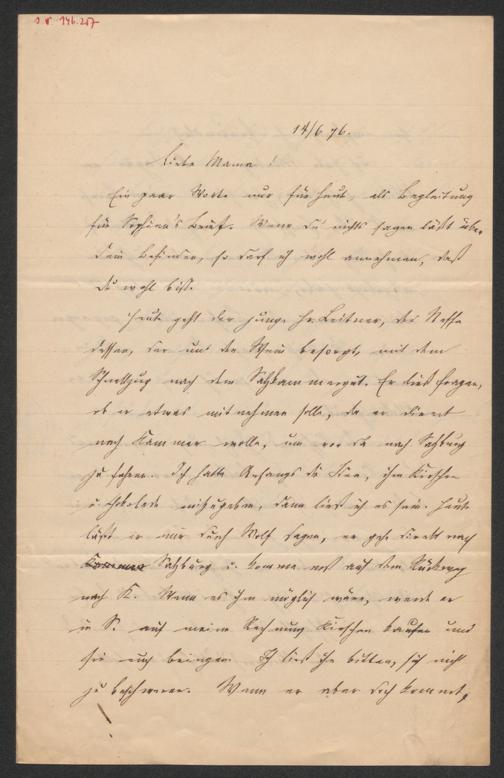 14/6 76.
Liebe Mama!
Ein paar Worte nur für heute, als Begleitung
für Sophies Brief. Wenn Du nichts sagen läßt über
Dein Befinden, so darf ich wohl annehmen, daß
Du wohl bist.
Heute geht der junge Hr. Leitner, der Neffe
dessen, der uns den Wein besorgt, mit dem
Schnellzug nach dem Salzkammergut. Er ließ fragen,
ob er etwas mitnehmen solle, da er direct
nach Kammer wolle, um von da nach Salzburg
zu fahren. Ich hatte Anfangs die Idee, ihm Kirschen
u. Chokolade mitzugeben, dann ließ ich es sein. Heute
läßt er mir durch Wolf sagen, er gehe direkt nach
Kammer Salzburg u. komme erst auf dem Rückweg
nach K. Wenn es ihm möglich wäre, werde er
in S. auf meine Rechnung Kirschen kaufen und
sie euch bringen. Ich ließ ihn bitten, sich nicht
zu beschweren. Wenn er aber doch kommt,